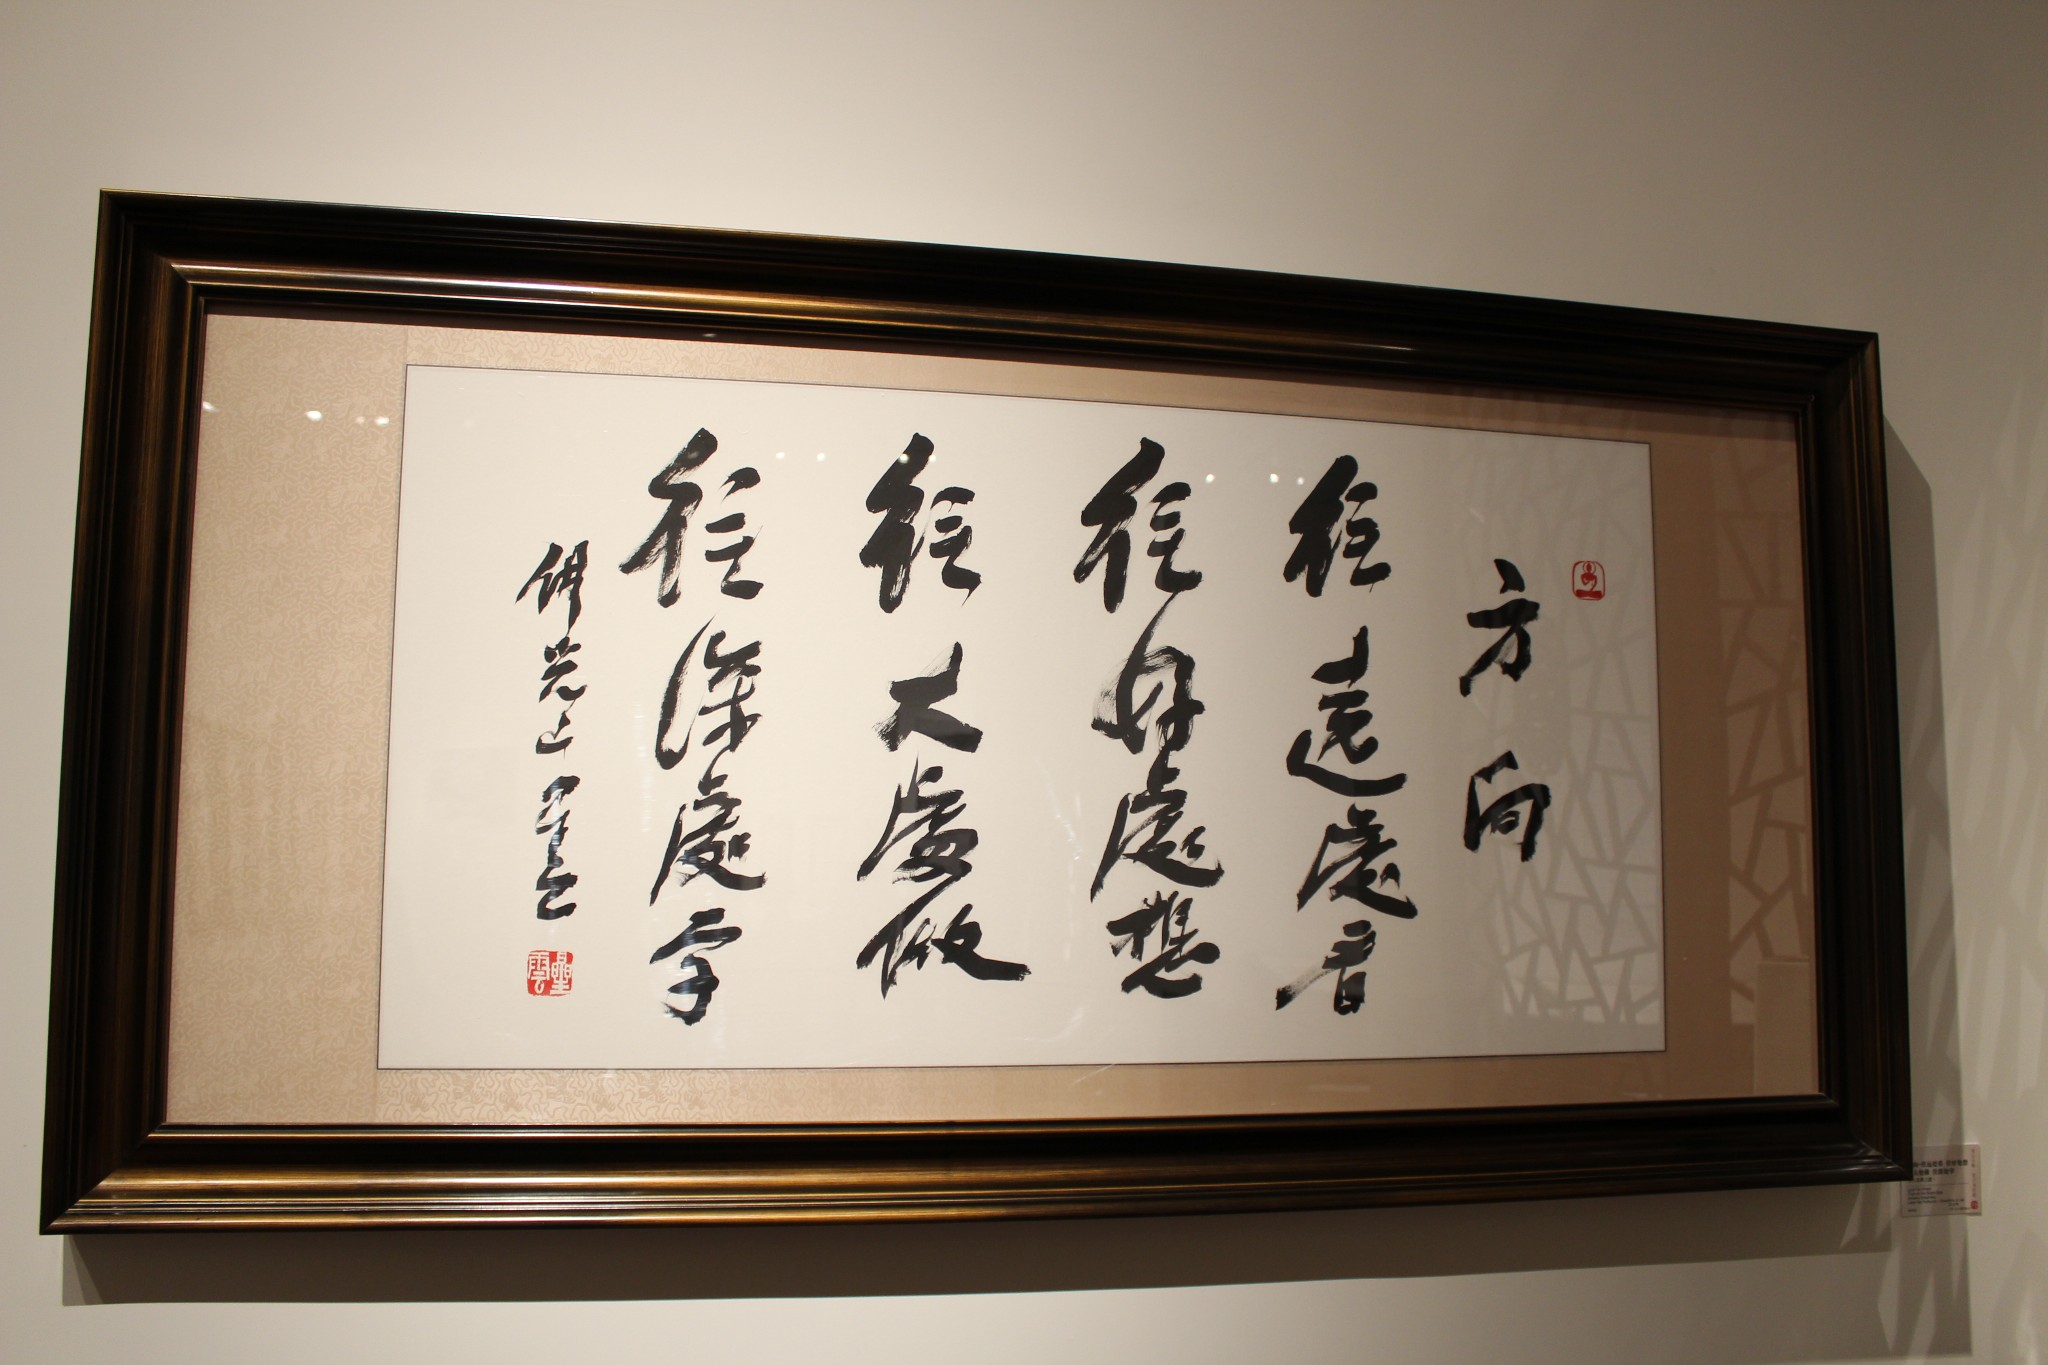 方向
往遠處看
往好處想
往大處做
往深處學
佛光山星雲
星雲